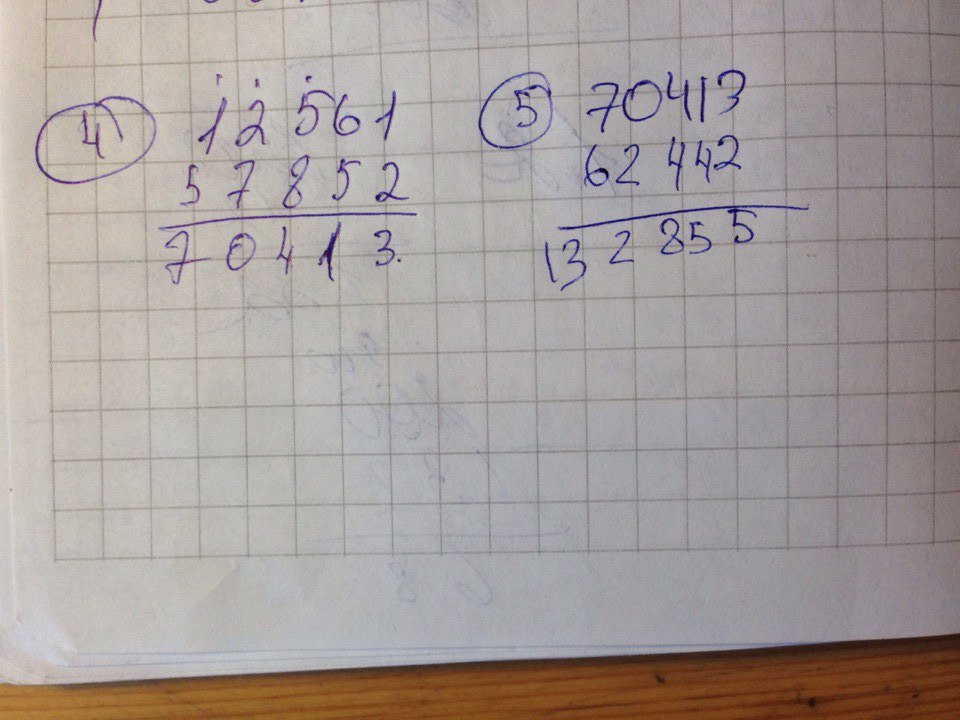 4 12561
57852
70413.
5 70413
62442
132855